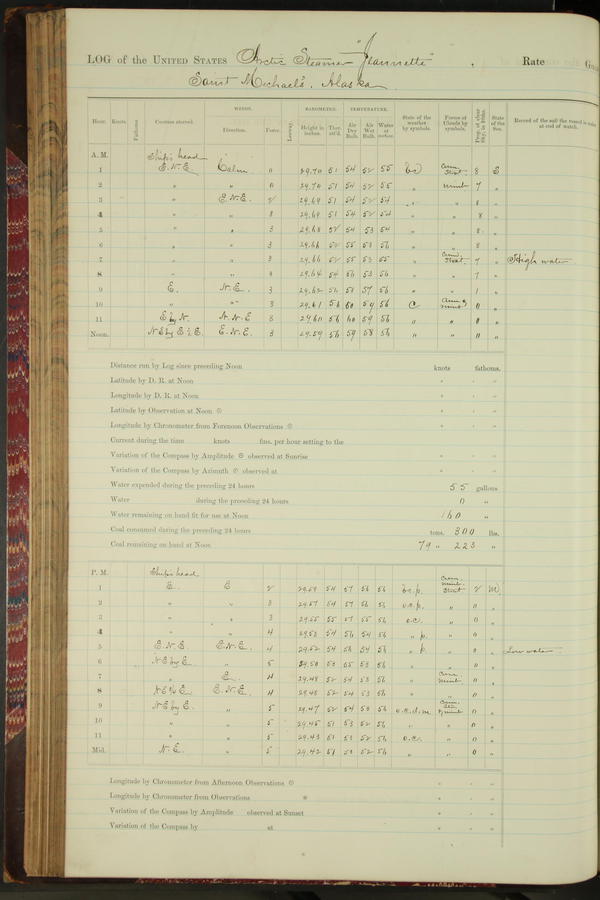 LOG of the UNITED STATES Arctic Steamer "Jeannette", Rate
Saint Michael's, Alaska
WINDS. BAROMETER. TEMPERATURE.
Hour. Knots. Fathoms. Courses steered. Direction. Force. Leeway. Height in inches. Ther. att'd. Air Dry Bulb. Air Wet Bulb. Water at surface. State of the weather by symbols. Forms of Clouds by symbols. Prop. of clear Sky, in 10ths. State of the Sea. Record of the sail the vessel is under at end of watch.
A. M. Ship's head
1 E.N.E. Calm 0 29.70 51 54 52 55 8
2 " " 0 29.70 51 54 52 55 " 7 "
3 " E.N.E. 2 29.69 51 54 52 54 " " 8 "
4 " " 3 29.69 51 54 52 54 " " 8 "
5 " " 3 29.68 52 54 53 54 " " 8 "
6 " " 3 29.66 52 55 53 56 " " 8 "
7 " " 3 29.66 52 55 53 55 " 7 " High water
8 " " 3 29.64 54 56 53 56 " " 7 "
9 E. N.E. 3 29.62 " " 1 "
10 " " 3 29.61 56 60 59 56 C 0 "
11 E by N. N.N.E. 3 29.60 56 60 59 56 " " 0 "
Noon. E.N.E. 3 29.59 56 59 58 56 " " 0 "
Distance run by Log since preceding Noon knots fathoms.
Latitude by D. R. at Noon ° ' "
Longitude by D. R. at Noon ° ' "
Latitude by Observation at Noon ° ' "
Longitude by Chronometer from Forenoon Observations ° ' "
Current during the time knots fms. per hour setting to the
Variation of the Compass by Amplitude observed at Sunrise ° ' "
Variation of the Compass by Azimuth observed at ° ' "
Water expended during the preceding 24 hours 55 gallons
Water during the preceding 24 hours 0 "
Water remaining on hand fit for use at Noon 160 "
Coal consumed during the preceding 24 hours tons, 300 lbs.
Coal remaining on hand at Noon 79 " 223 "
P. M. Ship's head
1 E. E 2 29.59 54 57 56 56 b.c.p. 2 M
2 " " 3 29.57 54 57 56 56 o.c.p. " 0 "
3 " " 3 29.55 55 57 55 56 o.c. " 0 "
4 " " 4 29.53 54 56 54 56 " p. " 0 "
5 E.N.E. E.N.E. 4 29.52 54 56 54 56 " p. " 0 " Low water
6 N.E by E. " 5 29.50 53 55 53 56 " " 0 "
7 " E. 4 29.48 52 54 53 56 " 0 "
8 E.N.E. 4 29.48 52 54 53 56 " " 0 "
9 N.E by E. " 5 29.47 52 54 53 56 o.c.d.m. 0 "
10 " " 5 29.45 51 53 52 56 " " 0 "
11 " " 5 29.43 51 53 52 56 o.c. " 0 "
Mid. N.E. " 5 29.42 51 53 52 56 " " 0 "
Longitude by Chronometer from Afternoon Observations ° ' "
Longitude by Chronometer from Observations ° ' "
Variation of the Compass by Amplitude observed at Sunset ° ' "
Variation of the Compass by at ° ' "